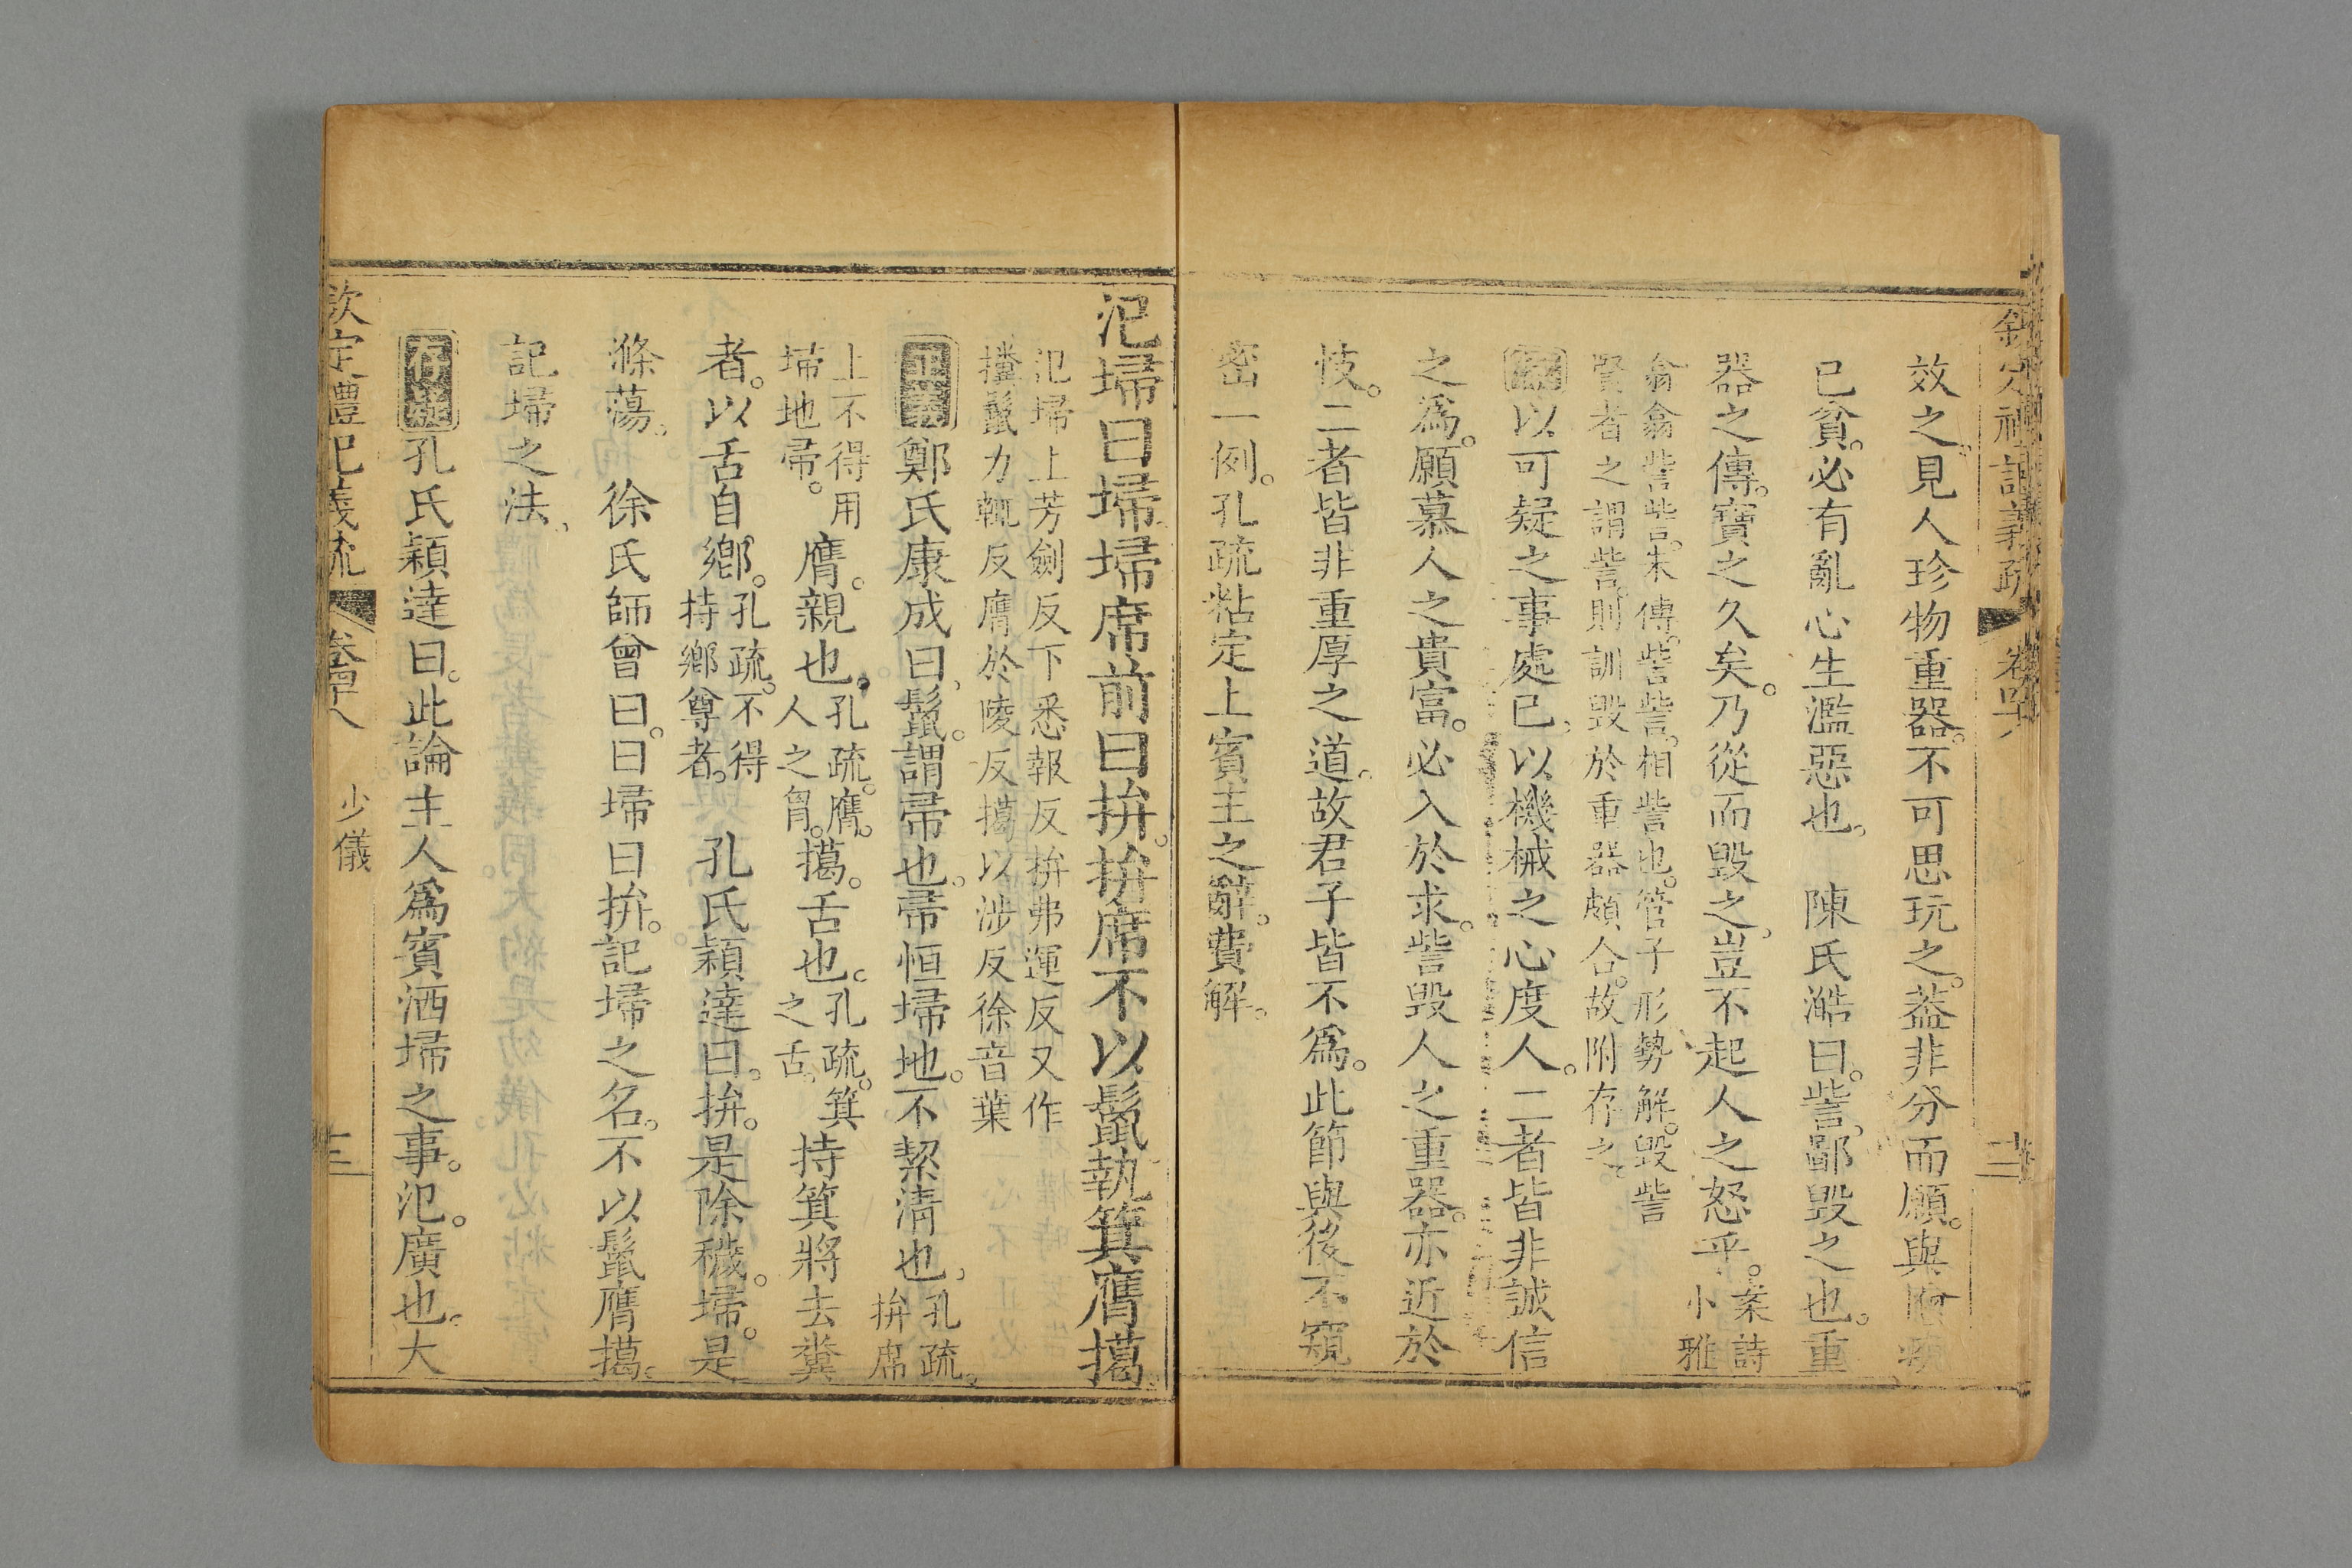 欽定禮記義疏 卷四十八 十二
效之。見人珍物重器。不可思玩之。蓋非分而願。與
已貧。必有亂心生濫惡也。 陳氏澔曰。訾。鄙毀之也。重
器之傳。寶之久矣。乃從而毀之。豈不起人之怒乎。案詩小雅
翕翕訾訾。朱傳。訾訾。相訾也。管子形勢解。毀訾
賢者之謂訾。則訓毀於重器頗合。故附存之。
以可疑之事處已。以機械之心度人。二者皆非誠信
之爲。願慕人之貴富。必入於求。訾毀人之重器。亦近於
忮。二者皆非重厚之道。故君子皆不爲。此節與後不窺
密一例。孔疏粘定上賓主之辭。費解。
氾埽曰埽埽席前曰拚。拚席不以鬛執箕膺擖。
氾埽上芳劍反下悉報反拚弗運反又作
㩹鬛力輒反膺於陵反擖以涉反徐音葉
正義鄭氏康成曰。鬛。謂帚也。帚恒埽地。不絜淸也。孔疏。拚席
上不得用埽地帚。膺。親也。孔疏。膺。人之胷。擖。舌也。孔疏。箕之舌。持箕將去糞
者。以舌自鄉。孔疏。不得持鄉尊者。 孔氏穎達曰。拚。是除穢。埽。是
滌蕩。 徐氏師曾曰。曰埽曰拚。記埽之名。不以鬛膺擖。
記埽之法。
存疑孔氏穎達曰。此論主人爲賓洒埽之事。氾。廣也。大
欽定禮記義疏 卷四十八 少儀 十三